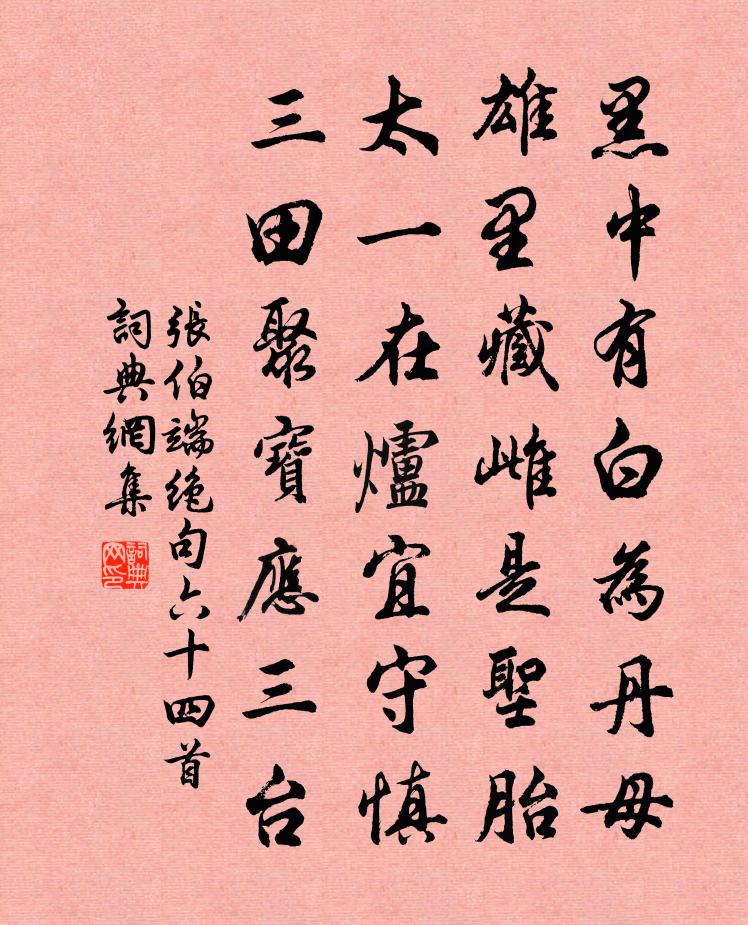 黑中有白為丹母
雄里藏雌是聖胎
太一在爐宜守慎
三田聚寶應三台
張伯端絶句六十四首
詞典網集
詞典网印